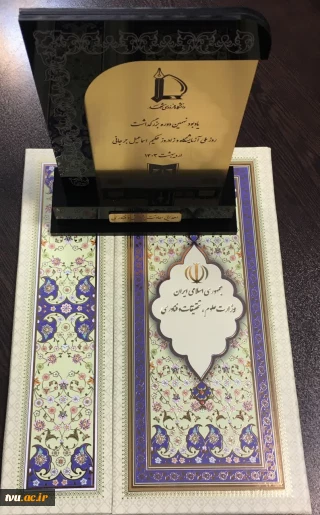 دانشگاه فردوسی مشهد
یادبود نهمین دوره بزرگداشت
روز ملی آزمایشگاه و زادروز حکیم اسماعیل جرجانی
اردیبهشت ۱۴۰۳
جمهوری اسلامی ایران
وزارت علوم، تحقیقات و فناوری
tvu.ac.ir